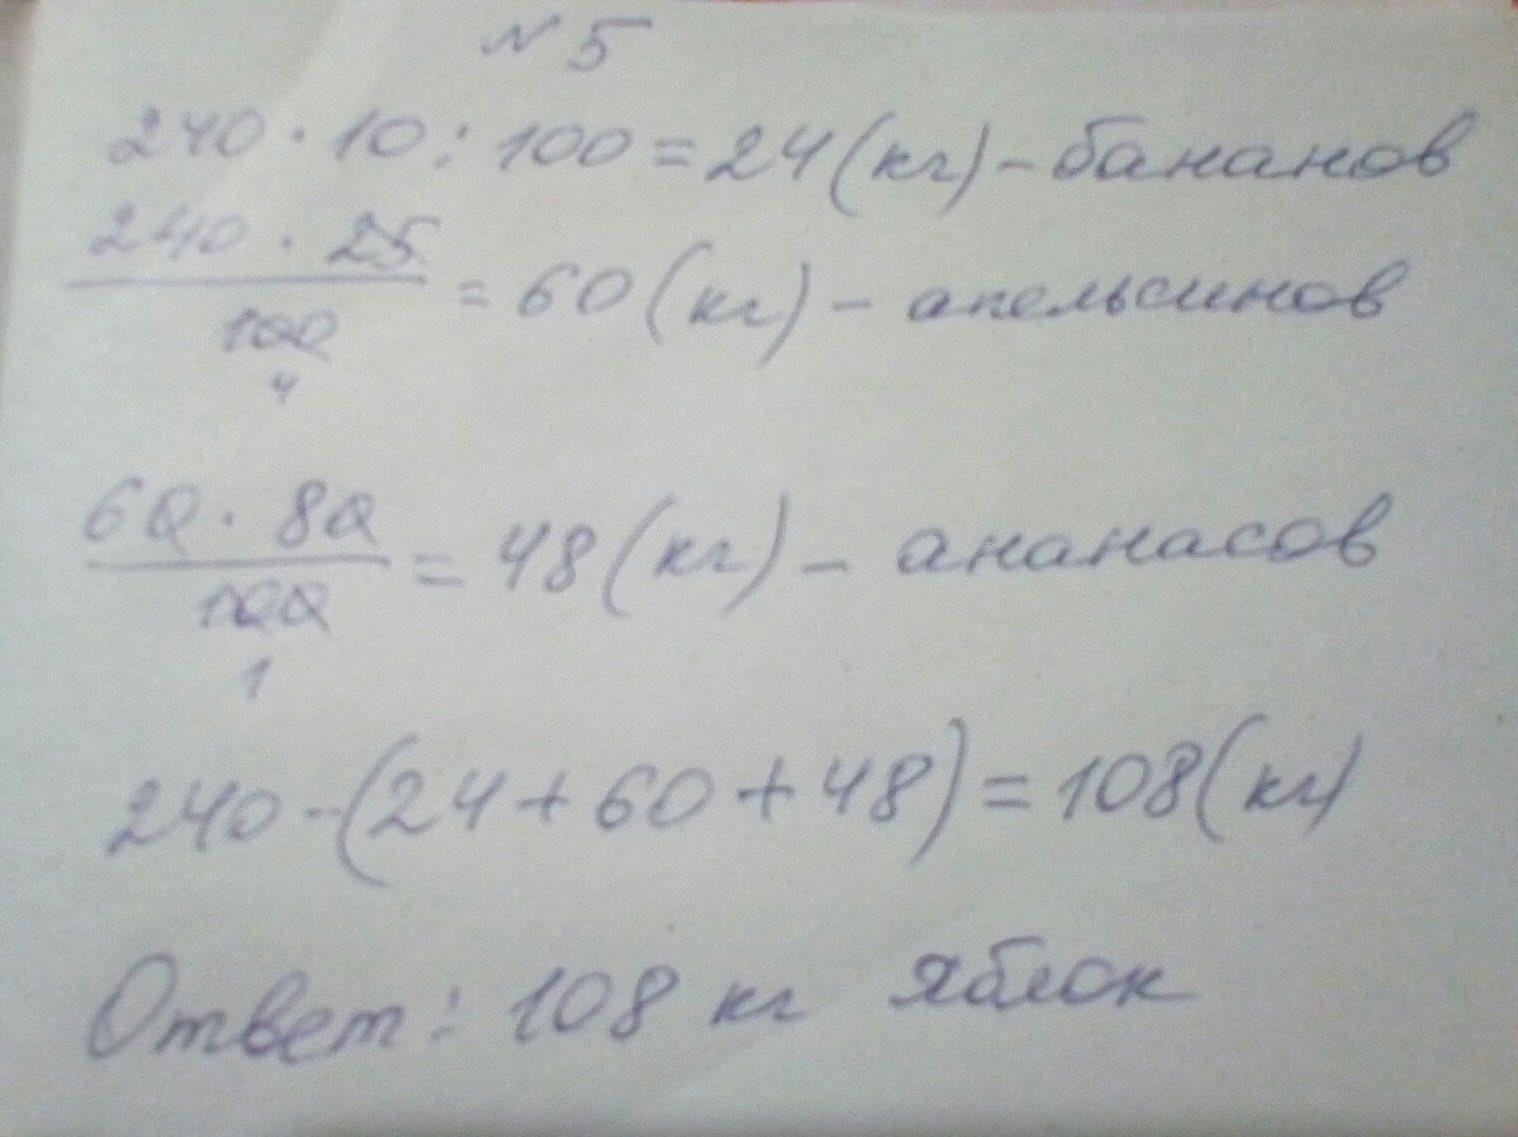 № 5
240 · 10 : 100 = 24 (кг) – бананов
240 · 25
100
4
= 60 (кг) – апельсинов
60 · 80
100
1
= 48 (кг) – ананасов
240 - (24 + 60 + 48) = 108 (кг)
Ответ: 108 кг яблок